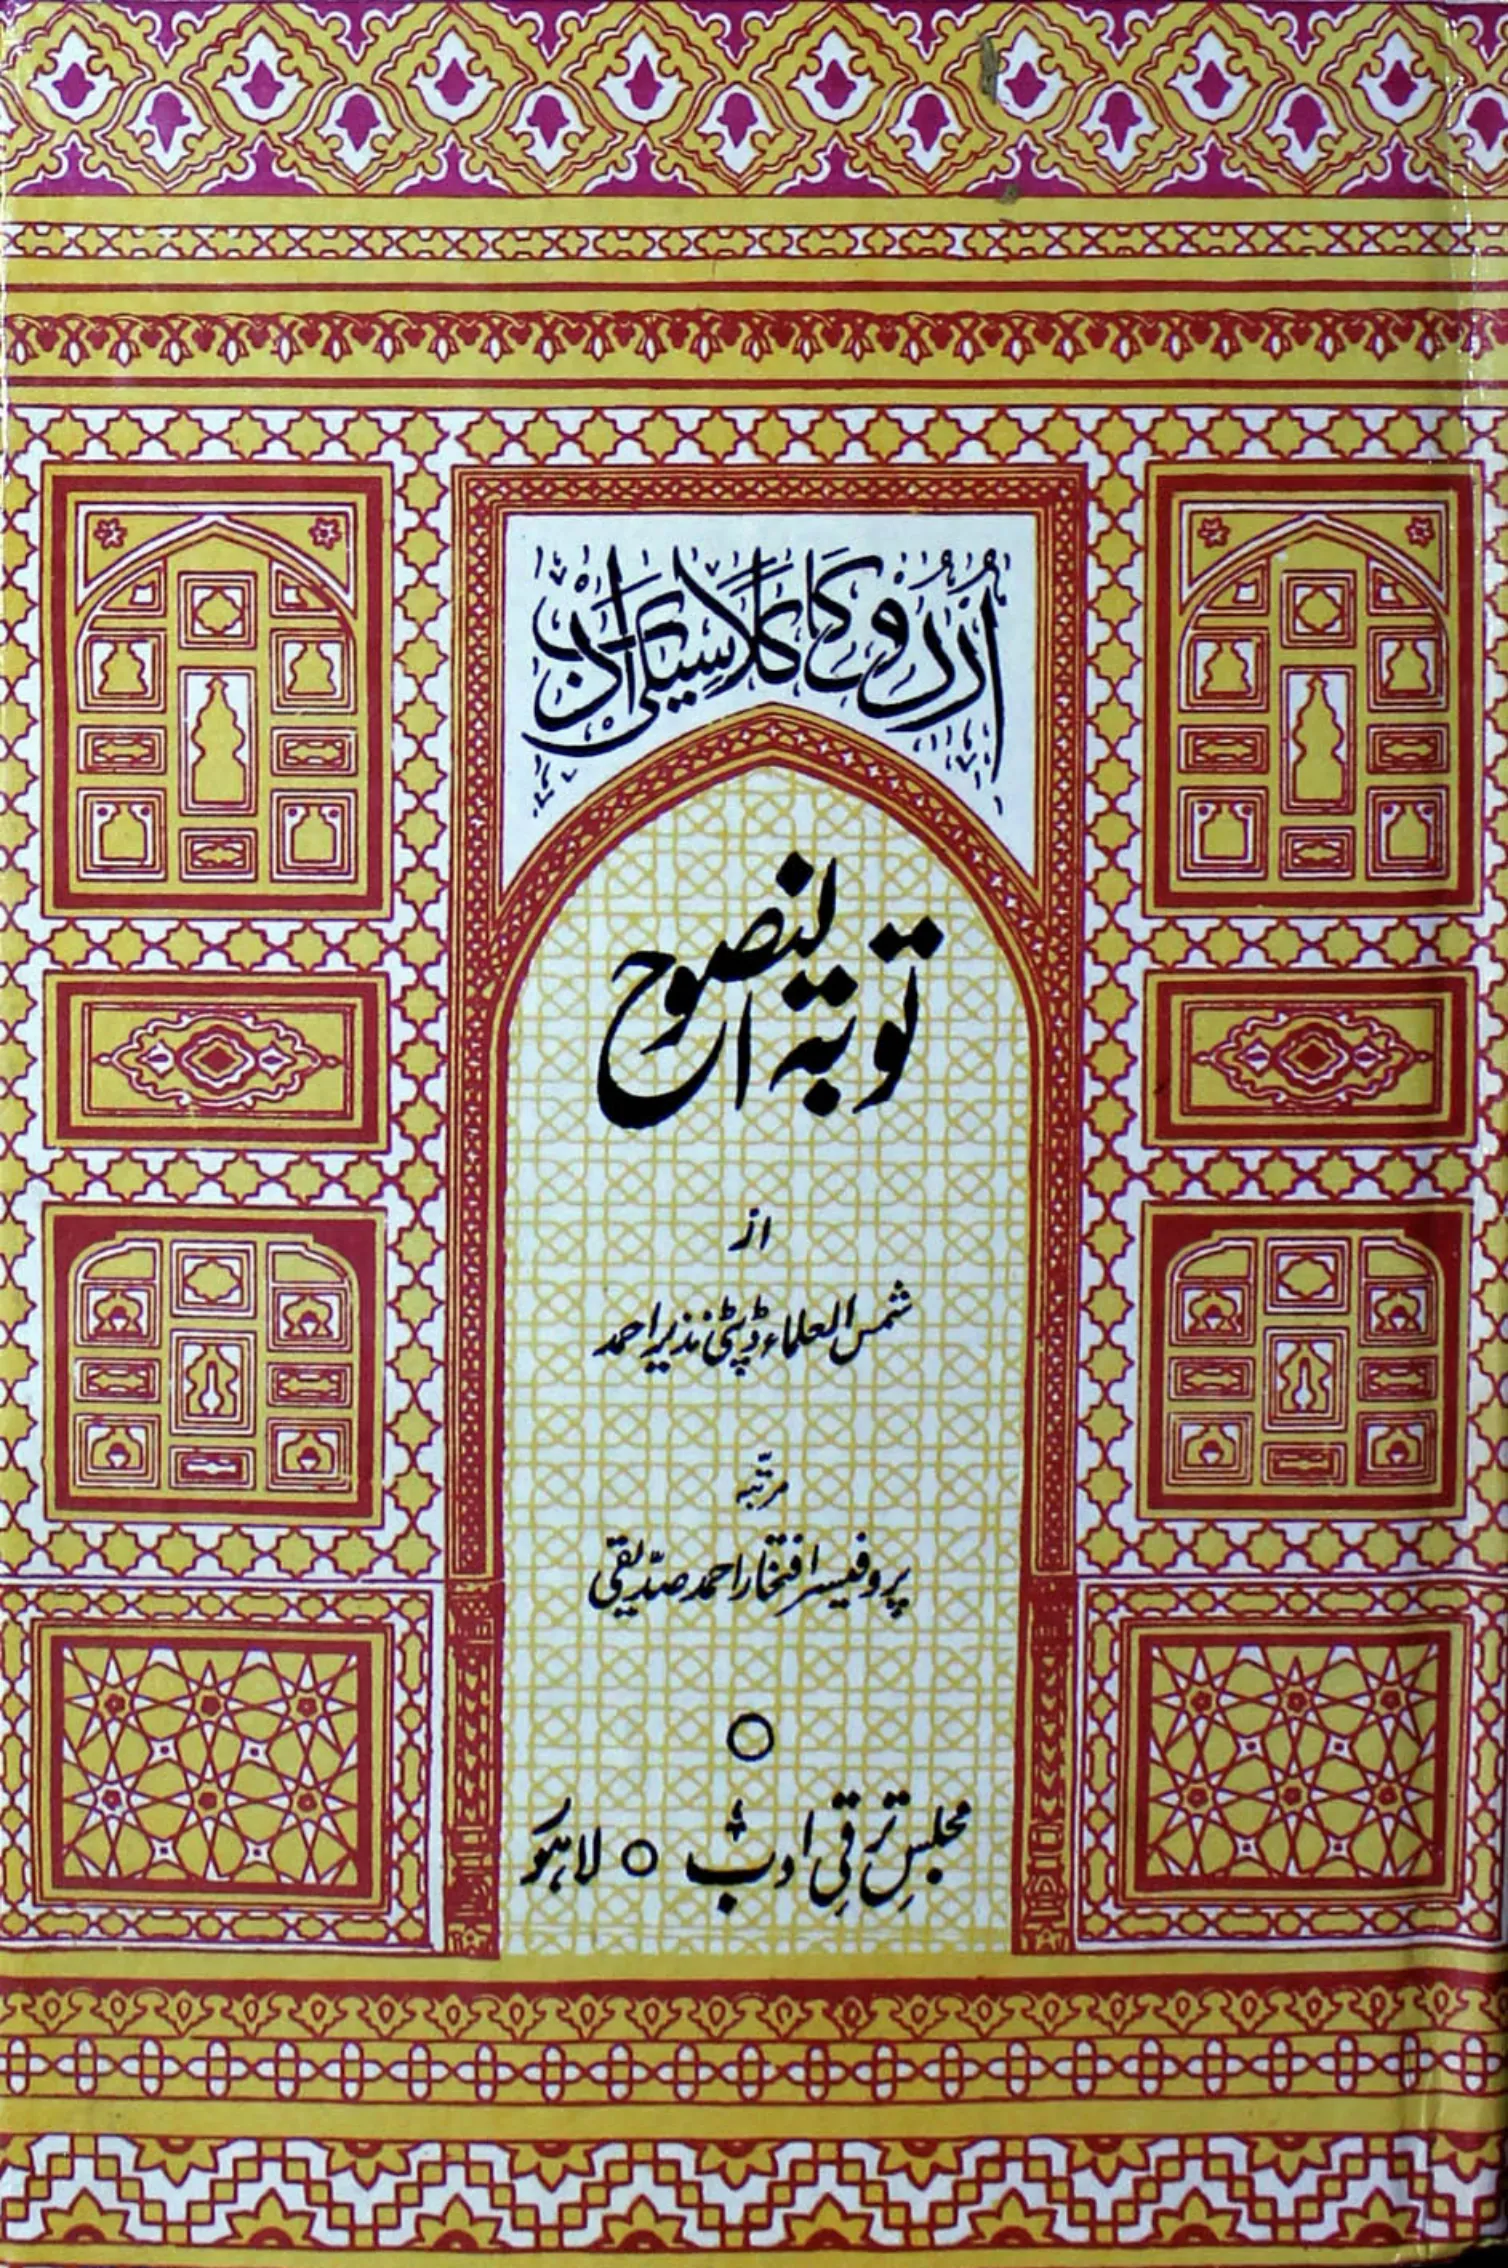 اردو کا کلاسیکی ادب
توبۃ النصوح
از
شمس العلماء ڈپٹی نذیر احمد
مرتبہ
پروفیسر افتخار احمد صدیقی
مجلسِ ترقیِ ادب ○ لاہور